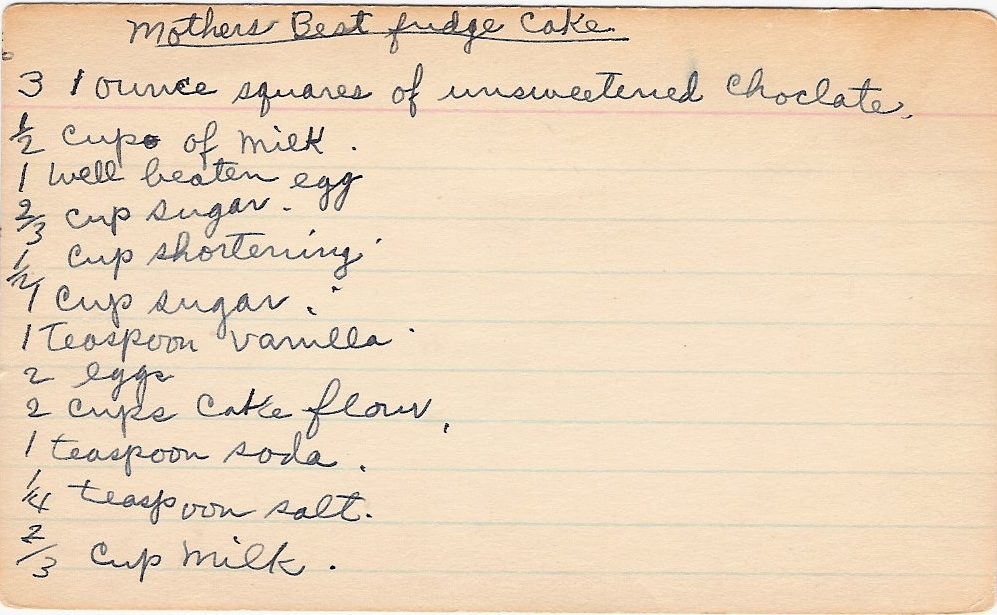 Mothers Best fudge Cake.
3 1 ounce squares of unsweetened Choclate.
1/2 cup of milk.
1 well beaten egg
2/3 cup sugar.
1/2 cup shortening.
1 cup sugar.
1 teaspoon vanilla
2 eggs
2 cups cake flour.
1 teaspoon soda.
1/4 teaspoon salt.
2/3 cup milk.